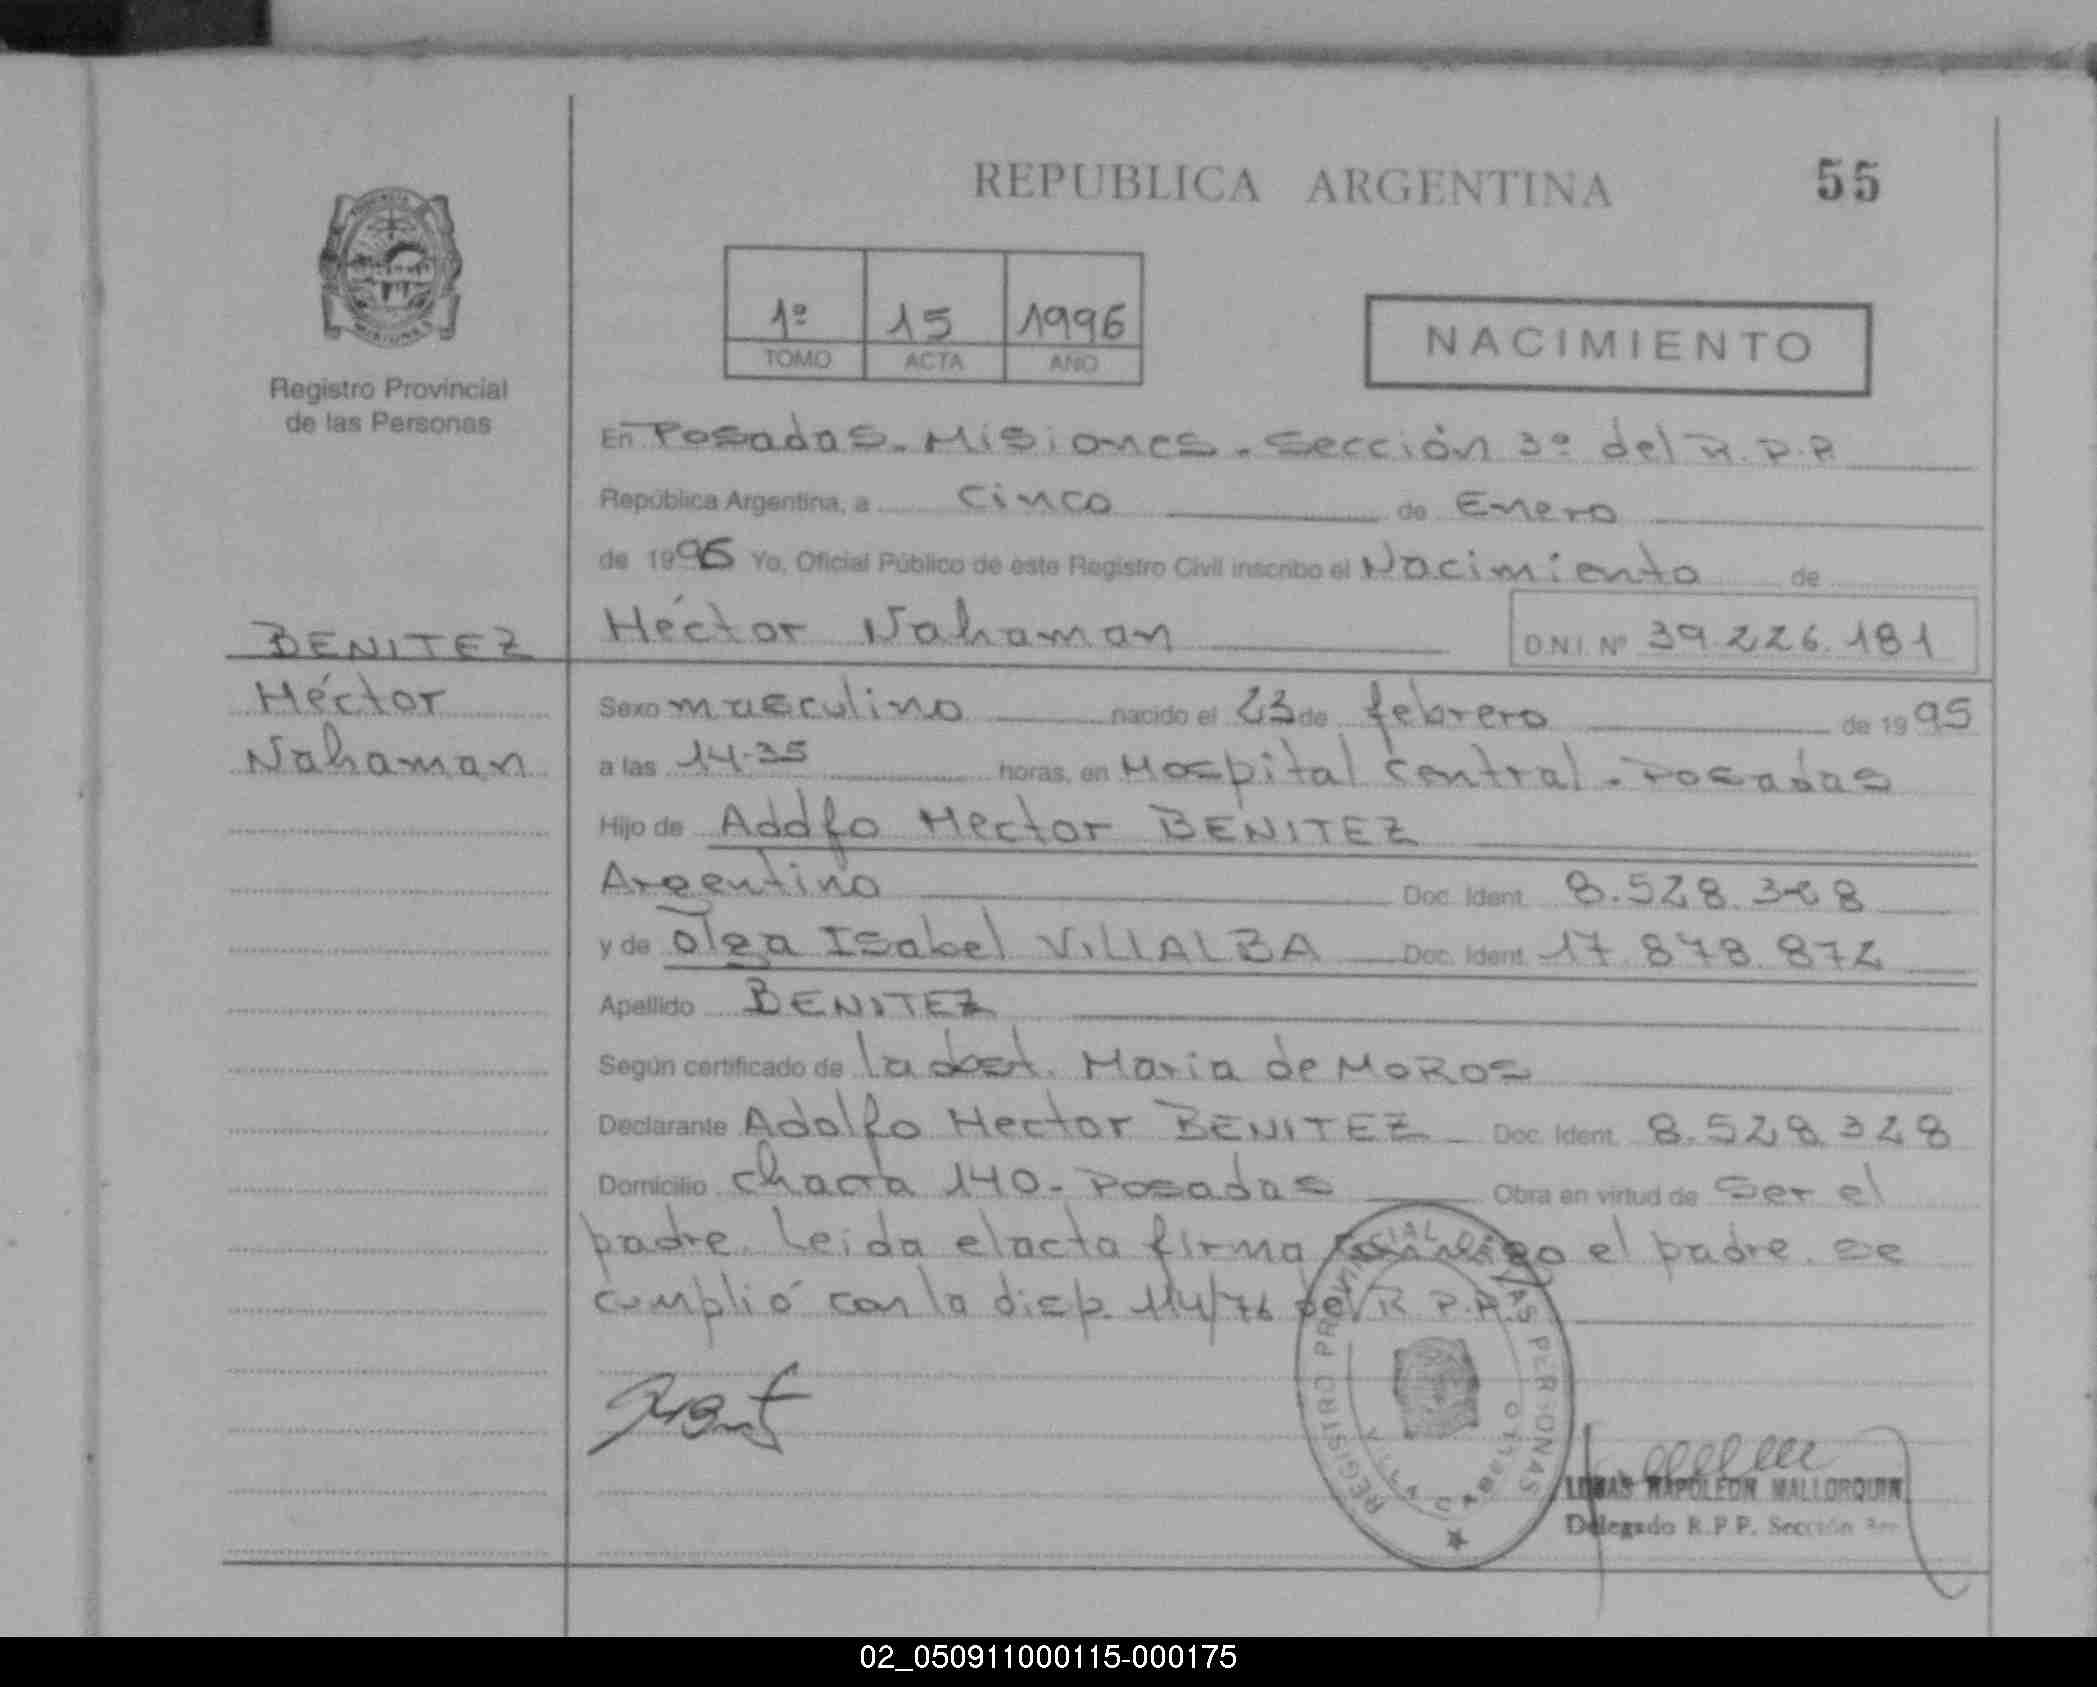 REPUBLICA ARGENTINA
55
1º 15 1996
TOMO ACTA AÑO
NACIMIENTO
Registro Provincial
de las Personas
En Posadas. Misiones. Sección 3º del R.P.P.
República Argentina, a cinco de Enero
de 1996 Yo, Oficial Público de este Registro Civil inscribo el Nacimiento de
Héctor Nahaman
D.N.I. Nº 39.226.181
BENITEZ
Héctor
Nahaman
Sexo masculino nacido el 23 de febrero de 1995
a las 14.35 horas, en Hospital Central - Posadas
Hijo de Adolfo Hector BENITEZ
Argentino Doc. Ident. 8.528.328
y de Olga Isabel VILLALBA Doc. Ident. 17.878.872
Apellido BENITEZ
Según certificado de la obst. Maria de MOROS
Declarante Adolfo Hector BENITEZ Doc. Ident. 8.528.328
Domicilio chacra 140 - Posadas Obra en virtud de ser el
padre. Leida el acta firma conmigo el padre. se
cumplió con la disp. 114/76 del R.P.P.
REGISTRO PROVINCIAL DE LAS PERSONAS
VILLA CABELLO
LUCAS NAPOLEON MALLORQUIN
Delegado R.P.P. Sección 3ra
02_050911000115-000175